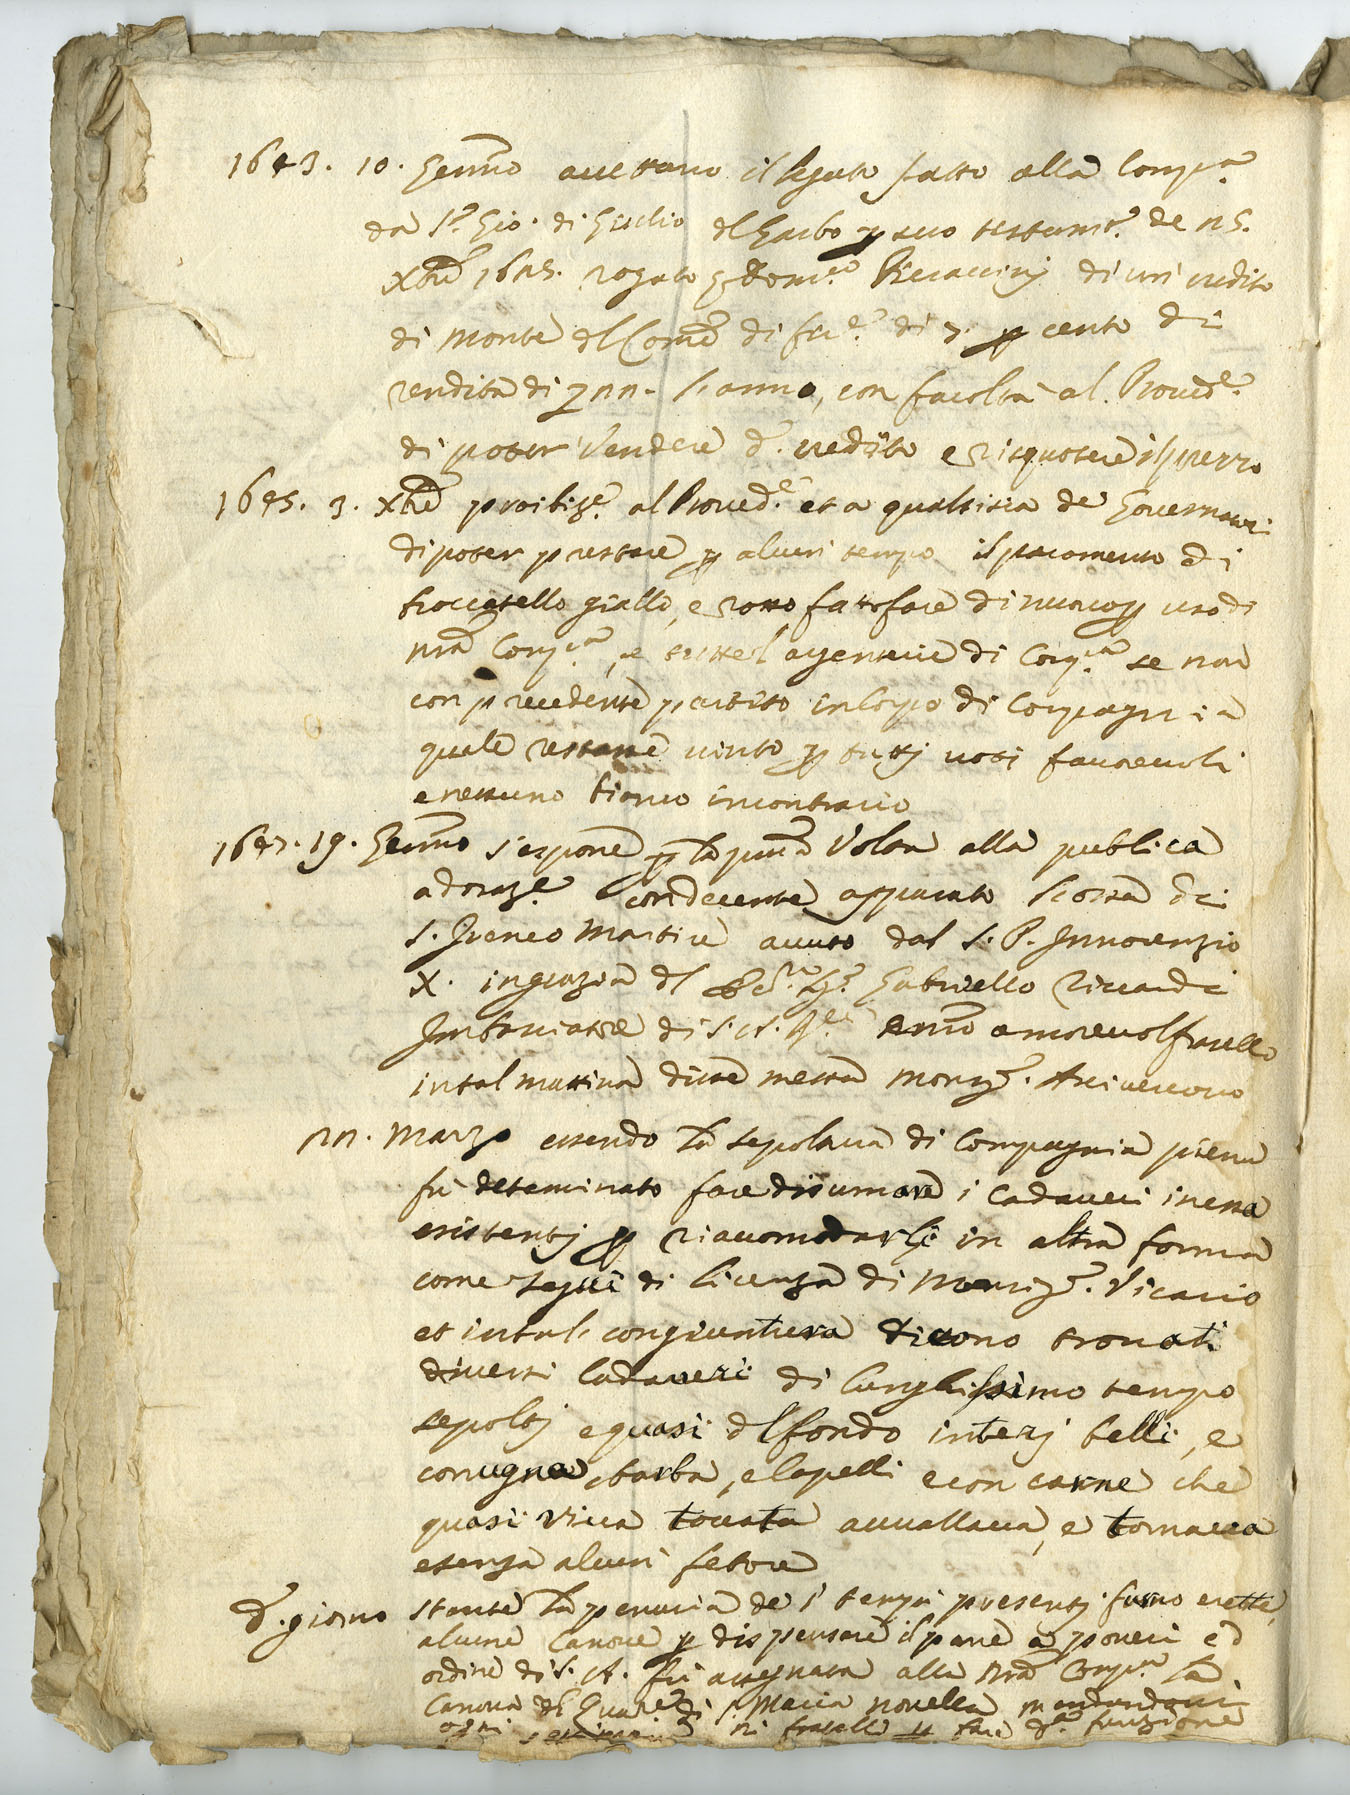 1643. 10. Genn.o accettano il legato fatto alla Comp.a
da S.r Gio. di Giulio del Garbo p suo testam.o de 25.
Xbre 1625. rogato p Dom.co Piccinini di un credito
di Monte del Com.e di fir.e di 7. p cento di
rendita di 22 l'anno, con facoltà al Proved.e
di poter Vendere d.o credito e risquotere il prezzo
1645. 3. Xbre proibiz.e al Proved.e et a qualsisia de Governatori
di poter prestare p alcun tempo il paramento di
broccatello giallo, e rosso fatto fare di nuovo p uso di
nra Comp.a, e tutte l'agenzie di Comp.a se non
con precedente partito in Corpo di Compagnia
quale restane vinto p tutti voti favorevoli
e nessuno bianco in contrario
1647. 19. Genn.o s'espone p la prima Volta alla publica
adoraz.e con decente apparato l'ossa di
S. Ireneo Martire avuto dal S. P. Innocenzio
X. in grazia del Sig.r Gabriello Riccardi
Imbasciatore di S. A. nro amorevol fratello
in tal mattina disse messa Monsig.r Arcivescovo
22. Marzo essendo la sepoltura di Compagnia piena
fù determinato fare disumare i Cadaveri in essa
existenti p riaccomodarli in altra forma
come seguì di licenza di Monsig.r Vicario
et in tal congiuntura dicono trovati
diversi Cadaveri di lunghissimo tempo
sepolti e quasi del fondo interi belli, e
con ugna, barba, e Capelli e con carne che
quasi viva toccata avvallava, e tornava
e senza alcun fetore
d.o giorno stante la penuria de i tempi presenti furno erette
alcune Canove p dispensare il pane a poveri e d
ordine di S. A. fù assegnata alla nra Comp.a la
Canova del Quar.e di S. Maria novella mandandovi
ogni settimana fratelli p fare d.a funzione